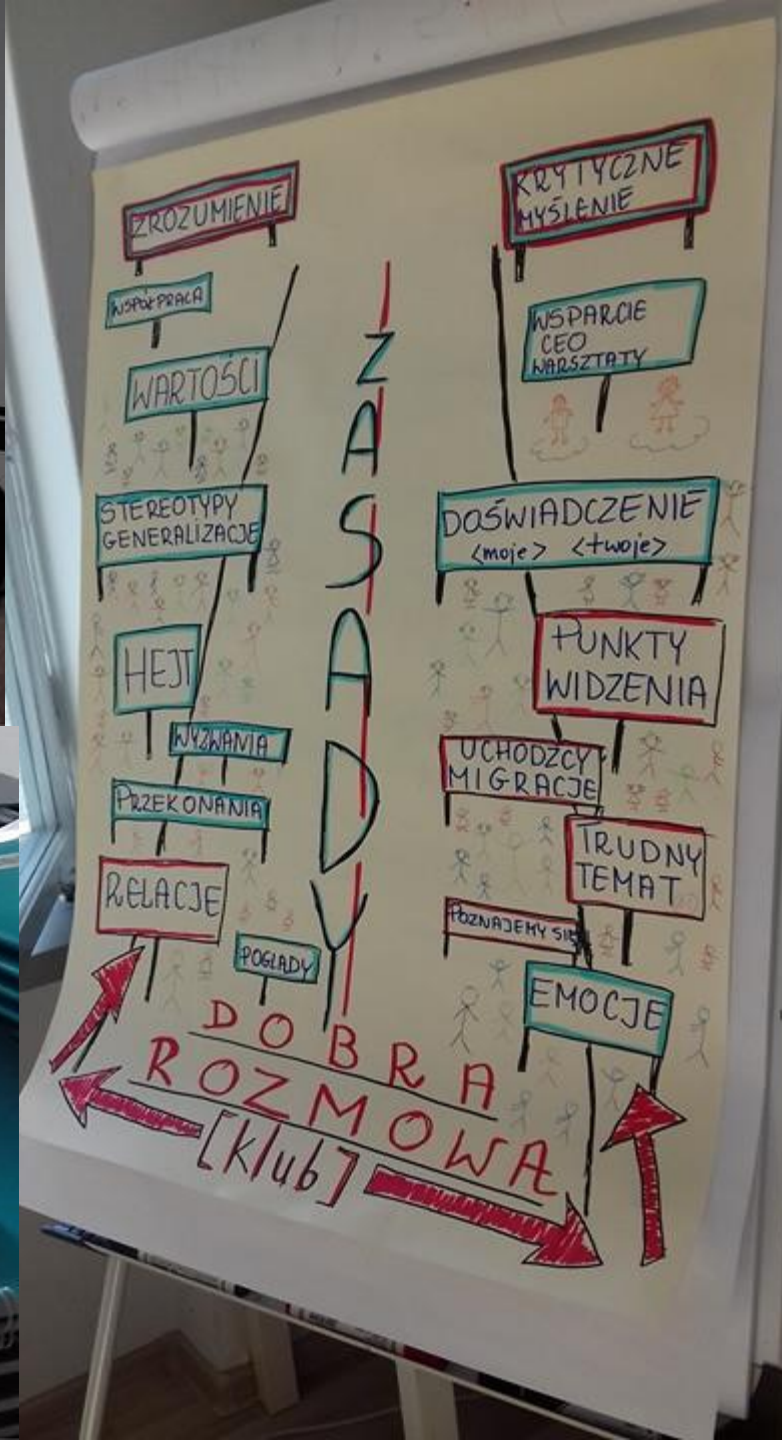 ZROZUMIENIE
WSPÓŁPRACA
WARTOŚCI
STEREOTYPY
GENERALIZACJE
HEJT
WYZWANIA
PRZEKONANIA
RELACJE
POGLĄDY
ZASADY
KRYTYCZNE
MYŚLENIE
WSPARCIE
CEO
WARSZTATY
DOŚWIADCZENIE
<moje> <twoje>
PUNKTY
WIDZENIA
UCHODZCY
MIGRACJE
TRUDNY
TEMAT
POZNAJEMY SIĘ
EMOCJE
DOBRA
ROZMOWA
[klub]